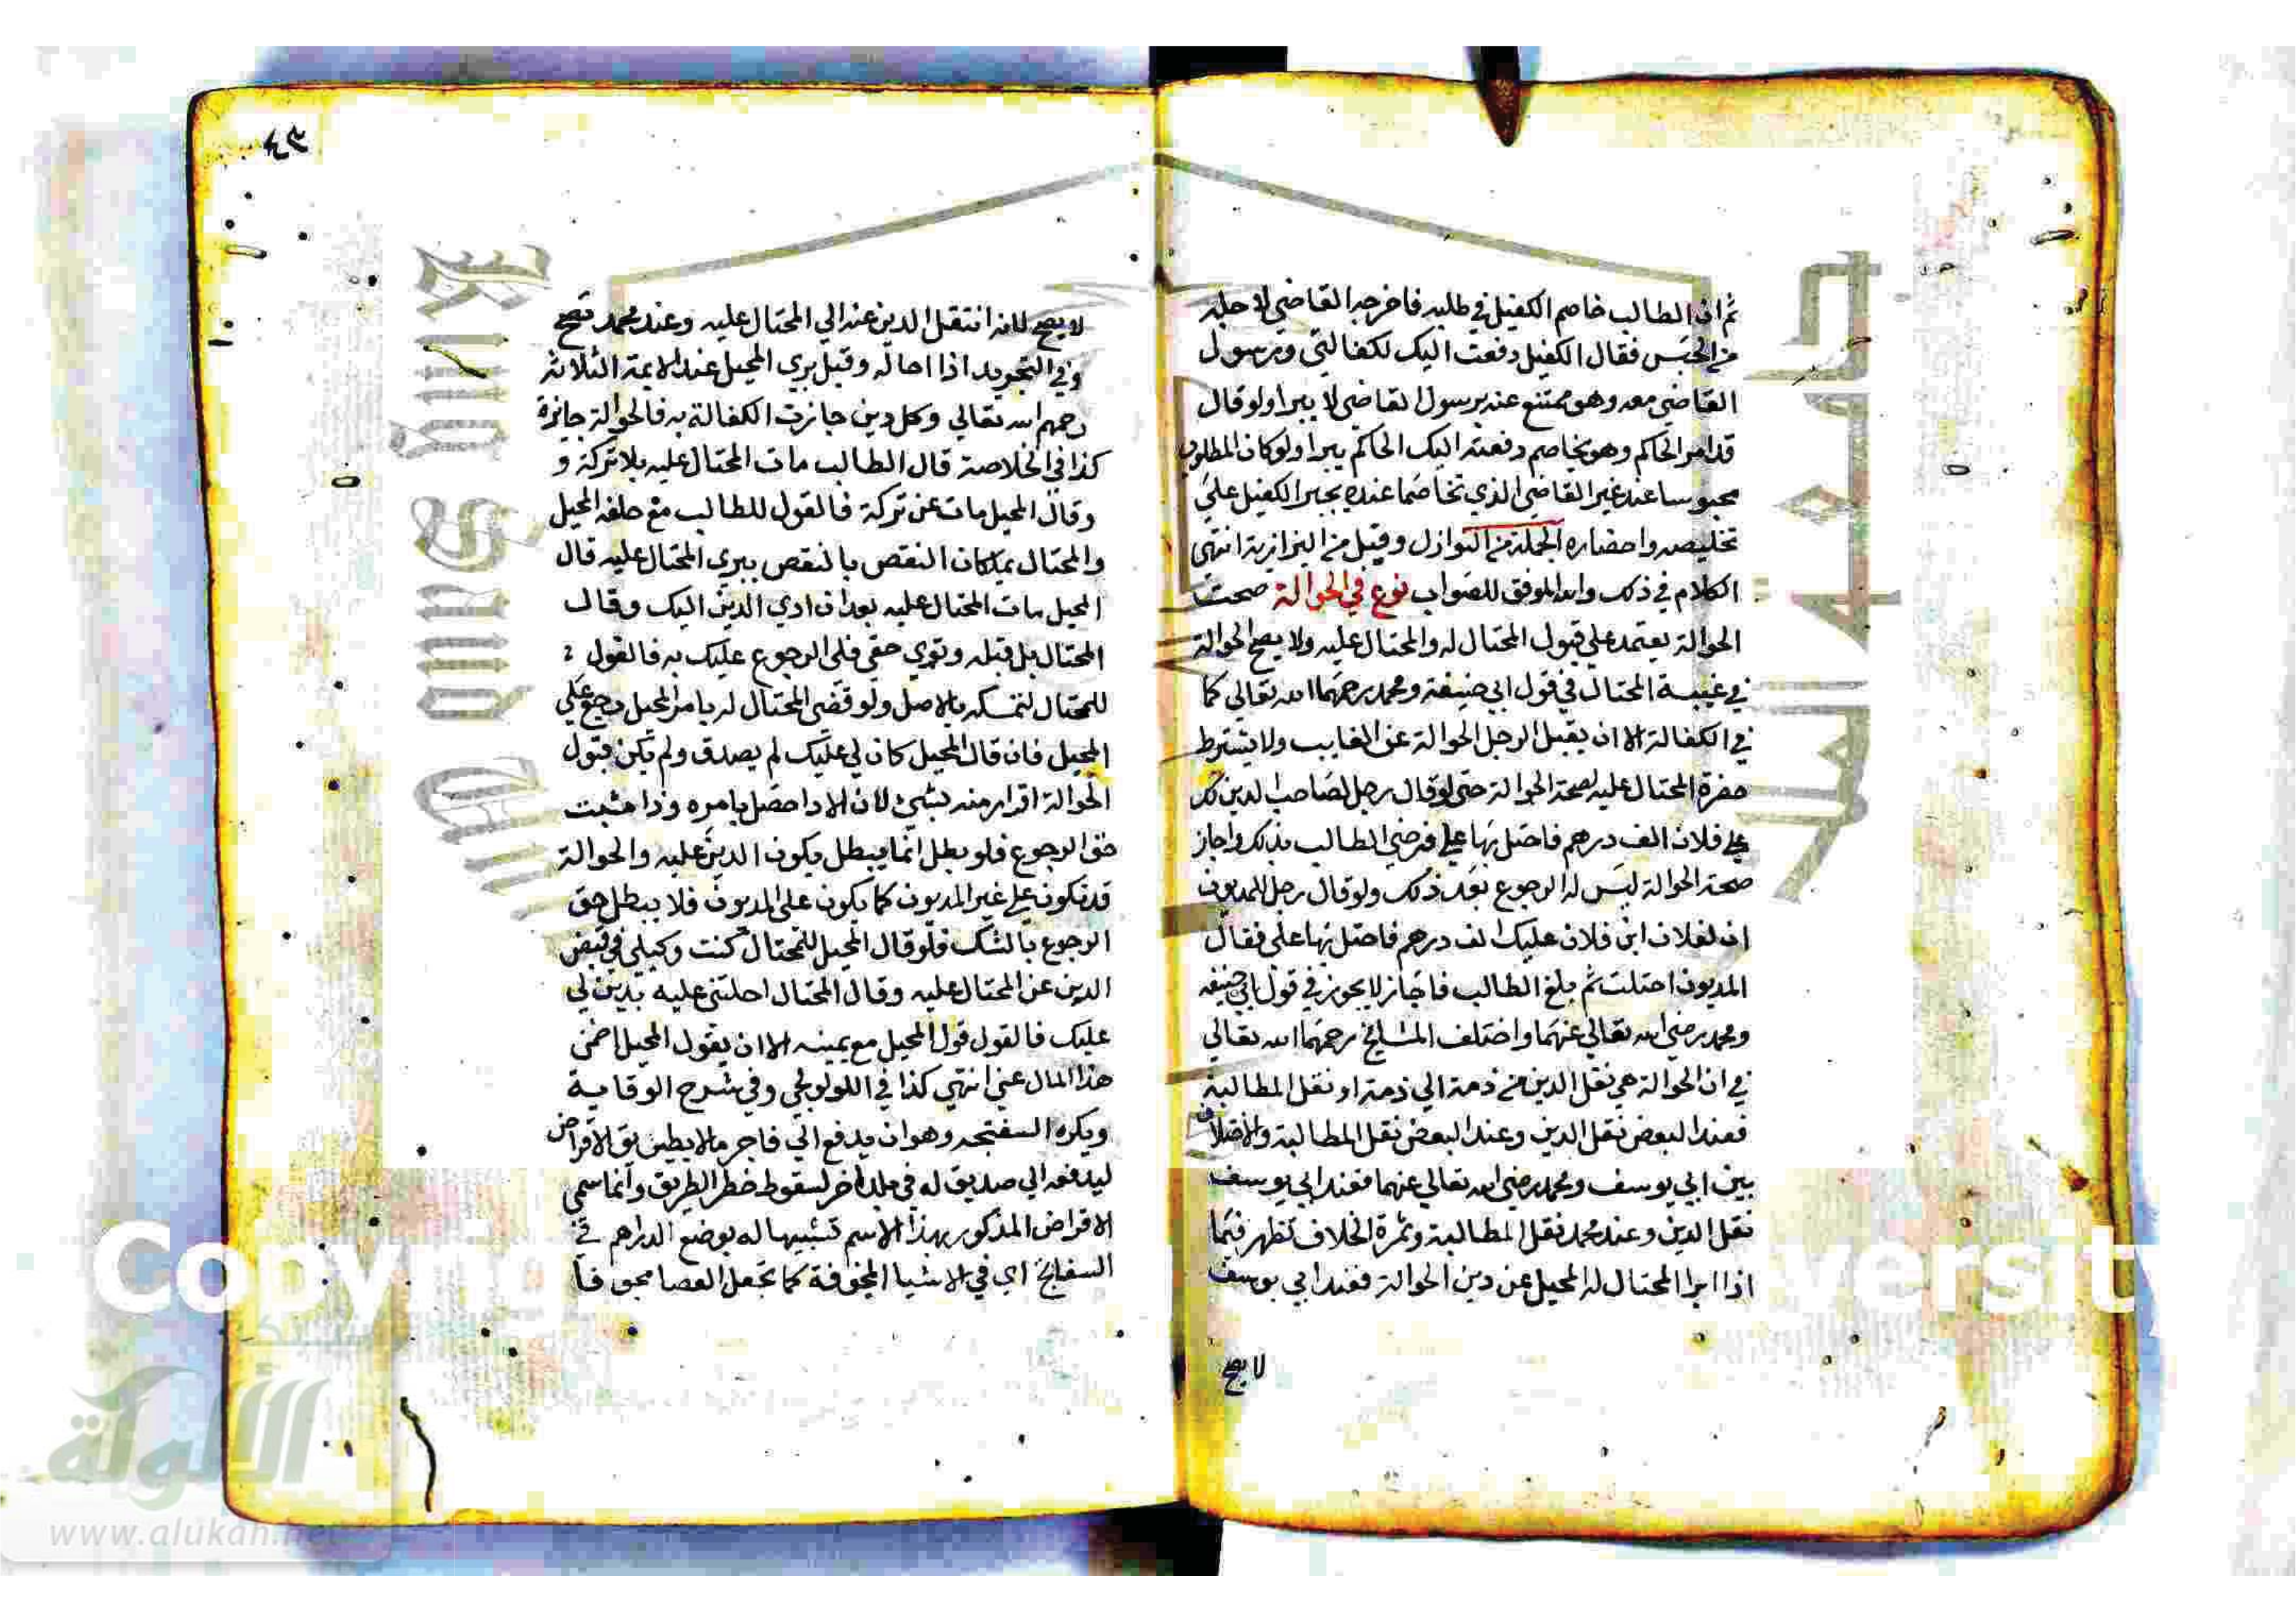 ثم ان الطالب خاصم الكفيل في طلبه فاخرجه القاضي لاجله
من الحبس فقال الكفيل دفعت اليك لكفالتي ورسول
القاضي معه وهو ممتنع عنه برسول القاضي لا يبرا ولو قال
قدام الحاكم وهو يخاصم دفعته اليك الحاكم يبرا ولو كان المطلوب
محبوسا عند غير القاضي الذي تخاصما عنده يجبر الكفيل علي
تخليصه واحضاره الجملة من النوازل وقيل من البزازية انتهى
الكلام في ذلك والله الموفق للصواب نوع في الحوالة صحت
الحوالة يعتمد علي قبول المحتال له والمحتال عليه ولا يصح الحوالة
في غيبة المحتال في قول ابي حنيفة ومحمد رحمهما الله تعالي كما
في الكفالة الا ان يقبل الرجل الحوالة عن الغايب ولا يشترط
حضرة المحتال عليه لصحة الحوالة حتي لو قال رجل لصاحب الدين لك
علي فلان الف درهم فاحتل بها علي فرضي الطالب بذلك واجاز
صحة الحوالة ليس له الرجوع بعد ذلك ولو قال رجل للمديون
ان لفلان ابن فلان عليك الف درهم فاحتل بها علي فقال
المديون احتلت ثم بلغ الطالب فاجاز لا يجوز في قول ابي حنيفه
ومحمد رضي الله تعالي عنهما واختلف المشايخ رحمهما الله تعالي
في ان الحوالة هي نقل الدين من ذمة الي ذمة او نقل المطالبة
فعند البعض نقل الدين وعند البعض نقل المطالبة والاختلاف
بين ابي يوسف ومحمد رضي الله تعالي عنهما فعند ابي يوسف
نقل الدين وعند محمد نقل المطالبة وثمرة الخلاف تظهر فيما
اذا ابرا المحتال له المحيل عن دين الحوالة فعند ابي يوسف
لا يصح
٤٣
لا يصح لانه انتقل الدين عنه الي المحتال عليه وعند محمد تصح
وفي التجريد اذا احاله وقبل بري المحيل عند الايمة الثلاثة
رحمهم الله تعالي وكل دين جازت الكفالة به فالحوالة جايزة
كذا في الخلاصة قال الطالب مات المحتال عليه بلا تركة و
وقال المحيل مات عن تركة فالقول للطالب مع حلفه المحيل
والمحتال يملكان النقص بالنقص يبري المحتال عليه قال
المحيل مات المحتال عليه بعد ان ادي الدين اليك وقال
المحتال بل قبله وتوي حقي فلي الرجوع عليك به فالقول
للمحتال لتمسكه بالاصل ولو قضي المحتال له بامر المحيل رجع علي
المحيل فان قال المحيل كان لي عليك لم يصدق ولم يكن قبول
الحوالة اقرار منه بشيء لان الادا حصل بامره وذا مثبت
حق الرجوع فلو بطل انما يبطل بكون الدين عليه والحوالة
قد تكون علي غير المديون كما يكون علي المديون فلا يبطل حق
الرجوع بالشك فلو قال المحيل للمحتال كنت وكيلي في قبض
الدين عن المحتال عليه وقال المحتال احلتني عليه بدين لي
عليك فالقول قول المحيل مع يمينه الا ان يقول المحيل اضمن
هذا المال عني انتهي كذا في اللولوجي وفي شرح الوقاية
ويكره السفتجه وهو ان يدفع الي تاجر مالا بطريق الاقراض
ليدفعه الي صديق له في بلد اخر لسقوط خطر الطريق وانما سمي
الاقراض المذكور بهذا الاسم تشبيها له بوضع الدراهم في
السفاتج اي في الاشيا المجوفة كما تجعل العصا مجوفا
Copyrig versity
الألوكة
www.alukah.net